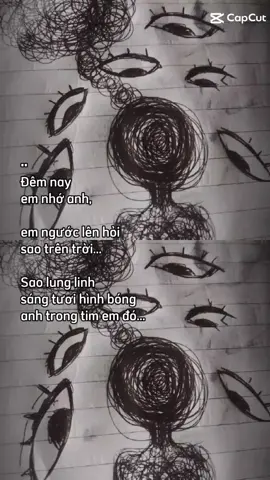 CapCut
..
Đêm nay
em nhớ anh,
em ngước lên hỏi
sao trên trời...
Sao lung linh
sáng tươi hình bóng
anh trong tim em đó...